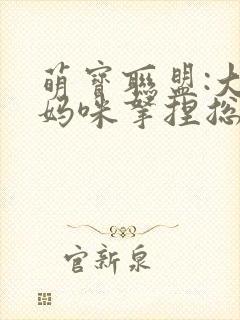 萌寶聯盟:大
媽咪拿捏總
官新泉